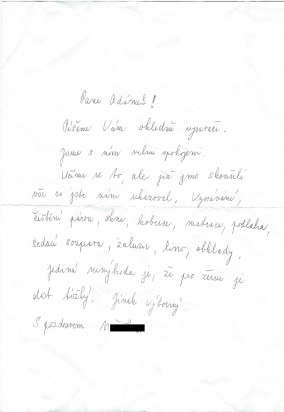 Pane Adámeš!
Píšeme Vám ohledně vysavače.
Jsme s ním velmi spokojeni
se to, ale již jsme zkoušeli
vše co jste nám ukazoval. Vysávání,
čištění peřin, okna, koberce, matrace, podlaha,
sedací souprava, žaluzie, lino, obklady.
Jediná nevýhoda je, že pro ženu je
dost těžký. Jinak výborný.
S pozdravem